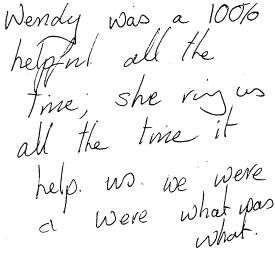 Wendy was a 100%
helpful all the
time, she ring us
all the time it
help. us. we were
a were what was
what.